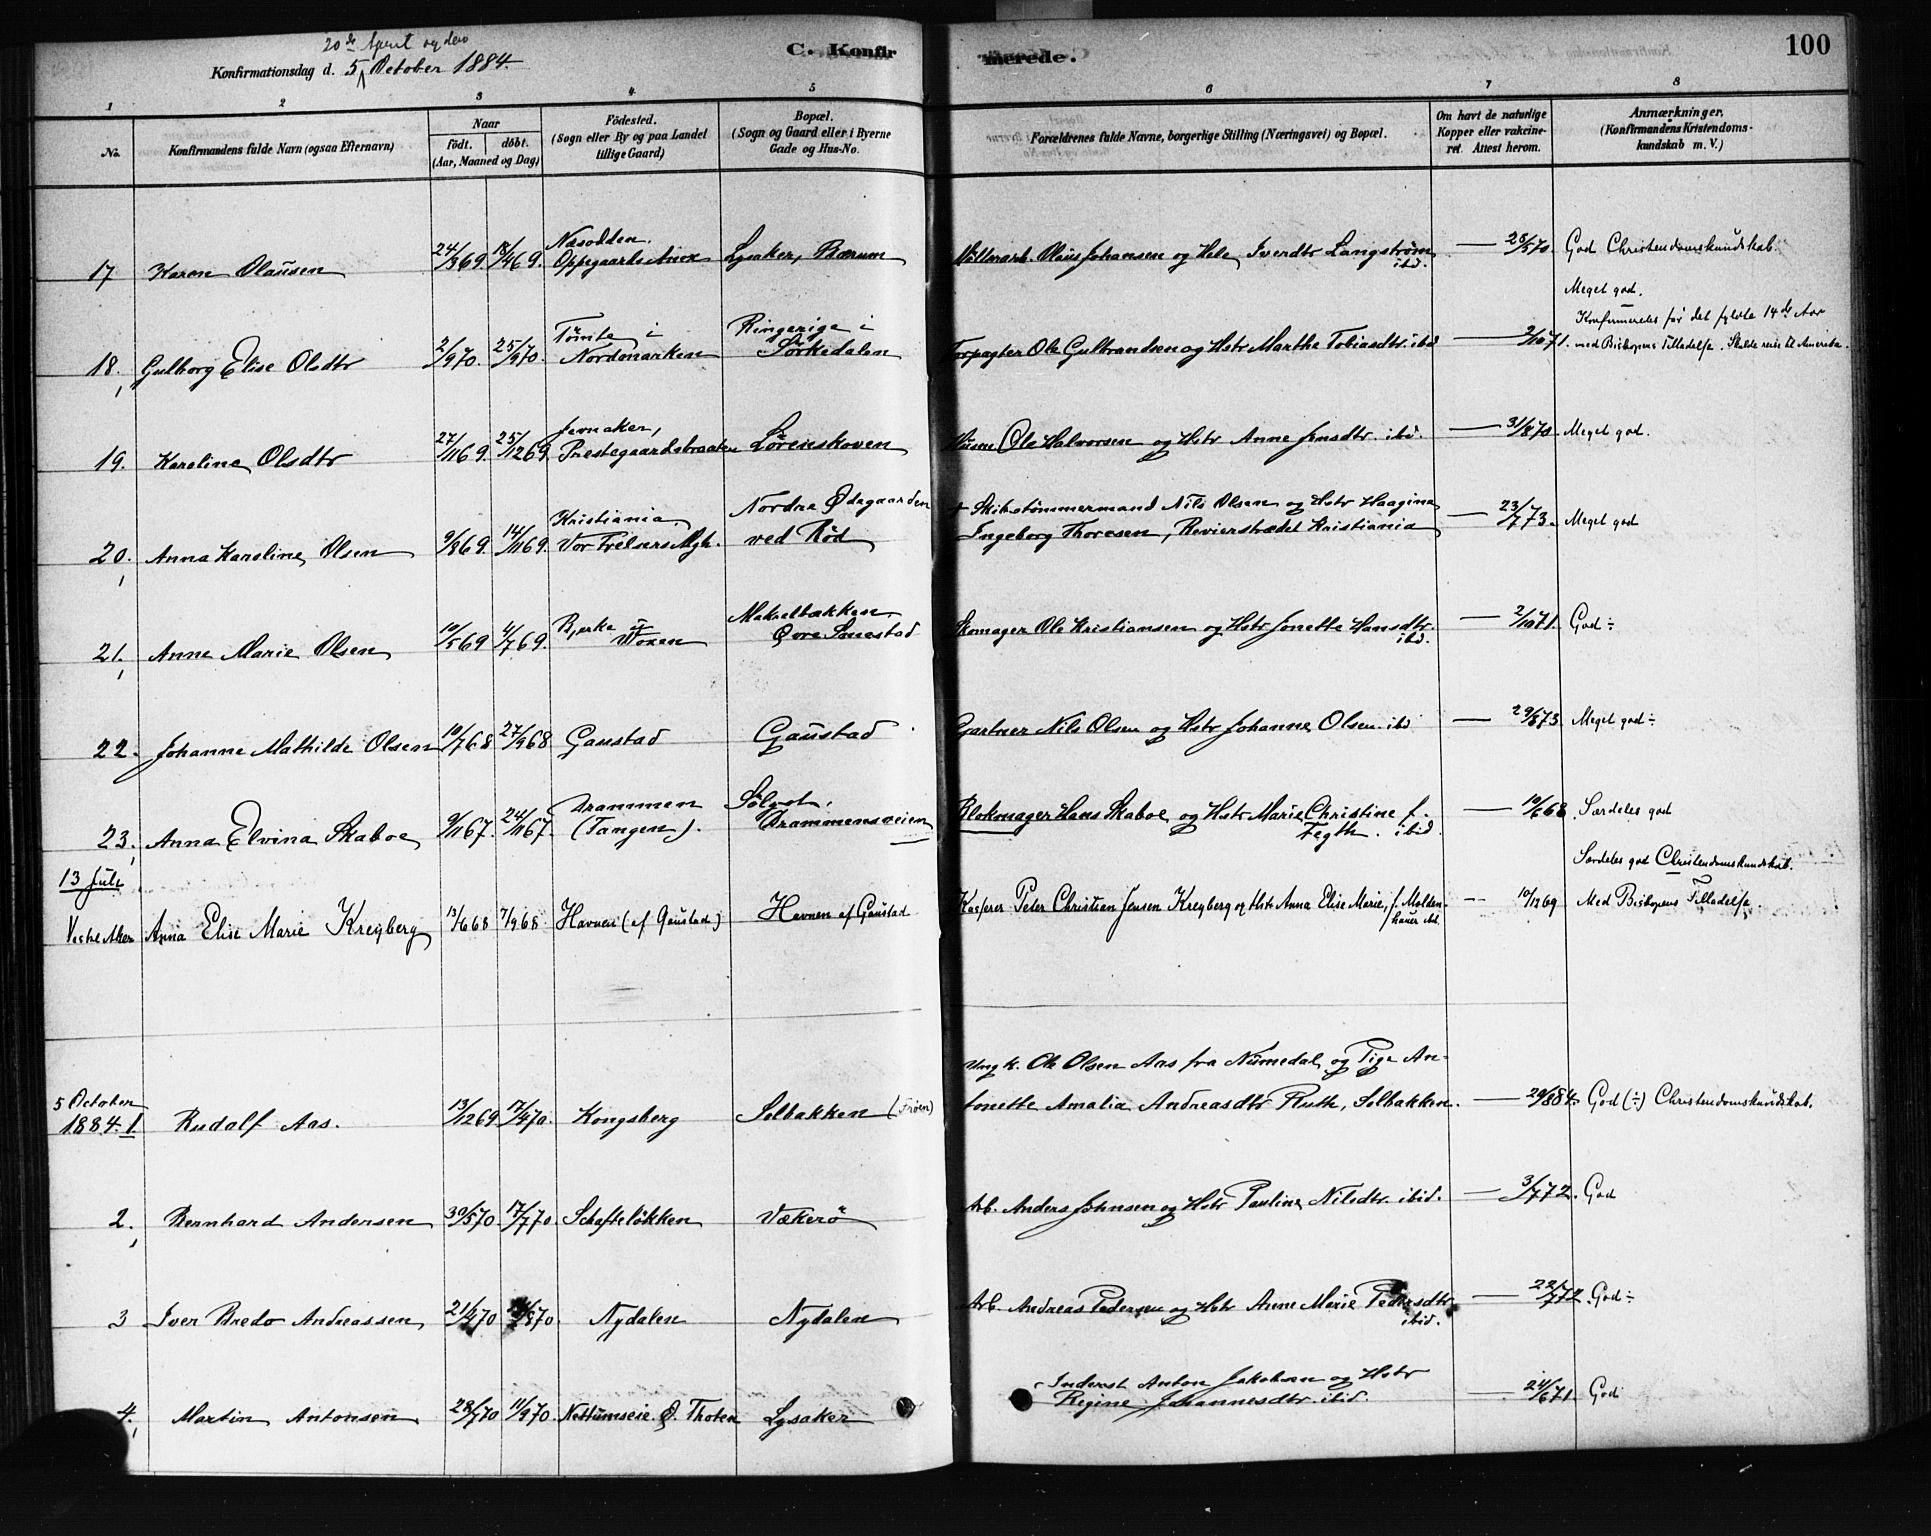 20de April og den
Konfirmationsdag d. 5 October 1884.
C. Konfir
merede.
100
1 2 3 4 5 6 7 8
No.
Konfirmandens fulde Navn (ogsaa Efternavn)
Naar
födt. döbt.
(Aar, Maaned og Dag)
Födested.
(Sogn eller By og paa Landet
tillige Gaard)
Bopæl.
(Sogn og Gaard eller i Byerne
Gade og Hus-No.
Forældrenes fulde Navne, borgerlige Stilling (Næringsvei) og Bopæl.
Om havt de naturlige
Kopper eller vakcine-
ret. Attest herom.
Anmærkninger.
(Konfirmandens Kristendoms-
kundskab m. V.)
Næsodden.
17 Karen Olausen 24/3 69 18/4 69. Oppegaards Anex Lysaker, Bærum Möllerarb. Olaus Johansen og Hele Iverdtr Langström — 28/5 70. God Christendomskundskab.
ibd.
Meget god.
Konfirmeredes før det fyldte 14de Aar
Tömte i Ringerige i
18. Gulborg Elise Olsdtr 2/9 70. 25/9 70. Nordmarken Sörkedalen Forpagter Ole Gulbrandsen og Hstr Marthe Tobiasdtr. ibd — 2/10 71. med Biskopens Tilladelse. Skulde reise til Amerika.
Jevnaker,
19. Karoline Olsdtr 27/11 69. 25/12 69. Prestegaardsbraaten Lörenskoven Husm. Ole Halvorsen og Hstr Anne Jensdtr. ibd. — 31/8 70 Meget god.
Kristiania Nordre Ødegaarden † Skibstömmermand Nils Olsen og Hstr Haagine
20. Anna Karoline Olsen 9/8 69. 14/11 69. Vor Frelsers Mgh. ved Röd Ingeborg Thoresen, Revierstrædet Kristiania — 23/7 73. Meget god
Makrelbækken
21. Anne Marie Olsen 10/5 69 4/7 69. Bjerke u Woxen Øvre Smestad Skomager Ole Kristiansen og Hstr Jonette Hansdtr. — 2/10 71. God ÷
ibd.
22. Johanne Mathilde Olsen 10/7 68 27/9 68 Gaustad Gaustad Gartner Nils Olsen og Hstr Johanne Olsen. ibd — 29/8 73. Meget god ÷
Drammen Sölyst,
23. Anna Elvina Skaboe 9/11 67. 24/11 67. (Tangen). Drammensveien Blokmager Hans Skaboe og Hstr Marie Christine f. — 10/6 68. Særdeles god
Fegth. ibid.
13 Juli Særdeles god Christendomskundskab.
Vestre Aker Anna Elise Marie Kregberg 13/6 68 7/9 68 Havnen (af Gaustad) Havnen af Gaustad Kasserer Peter Christian Jensen Kregberg og Hstr Anna Elise Marie, f. Molden- — 10/12 69 Med Biskopens Tilladelse
hauer ibd.
Ungk. Ole Olsen Aas fra Numedal og Pige An-
5 October
1884. 1. Rudolf Aas. 13/12 69. 17/4 70. Kongsberg Solbakken (Fröen) tonette Amalia Andreasdtr Ruth, Solbakken. — 20/8 84. God (÷) Christendomskundskab.
2. Bernhard Andersen 30/5 70. 17/7 70. Schafteløkken Vækerö Arb. Anders Johnsen og Hstr Pauline Nilsdtr. ibid. — 3/7 72. God
3 Iver Bredo Andreassen 21/4 70 8 70. Nydalen Nydalen Arb. Andreas Pedersen og Hstr Anne Marie Pedersdtr — 22/7 72. God ÷
ibid.
Inderst Anton Jakobsen og Hstr
4. Martin Antonsen 28/7 70 11/9 70. Nettumseie. Ø. Thoten Lysaker Regine Johannesdtr. ibid. — 24/6 71. God